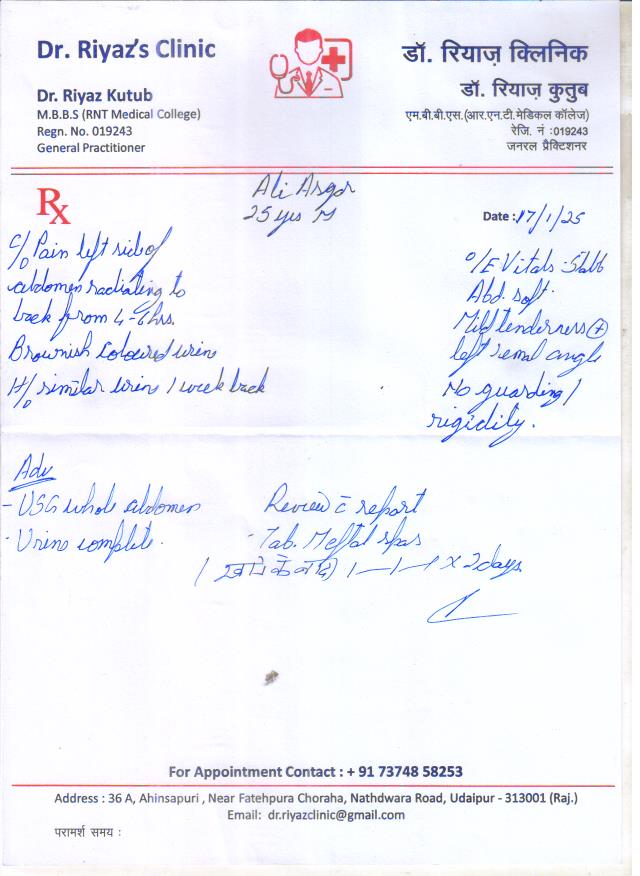 Dr. Riyaz's Clinic
Dr. Riyaz Kutub
M.B.B.S (RNT Medical College)
Regn. No. 019243
General Practitioner
डॉ. रियाज़ क्लिनिक
डॉ. रियाज़ कुतुब
एम.बी.बी.एस.(आर.एन.टी.मेडिकल कॉलेज)
रेजि. नं :019243
जनरल प्रैक्टिशनर
Rx
Ali Asgar
25 yrs M
Date : 17/1/25
C/O Pain left side of
abdomen radiating to
back from 4-6 hrs.
Brownish coloured urine
H/O similar urine 1 week back
O/E Vitals - Stabl
Abd. soft.
Mild tenderness (+)
left renal angle
No guarding /
rigidity.
Adv
- USG whole abdomen
- Urine complete.
Review c̄ report
- Tab. Meftal spas
(खाने के बाद) 1—1—1 x 2 days
For Appointment Contact : + 91 73748 58253
Address : 36 A, Ahinsapuri , Near Fatehpura Choraha, Nathdwara Road, Udaipur - 313001 (Raj.)
Email: dr.riyazclinic@gmail.com
परामर्श समय :